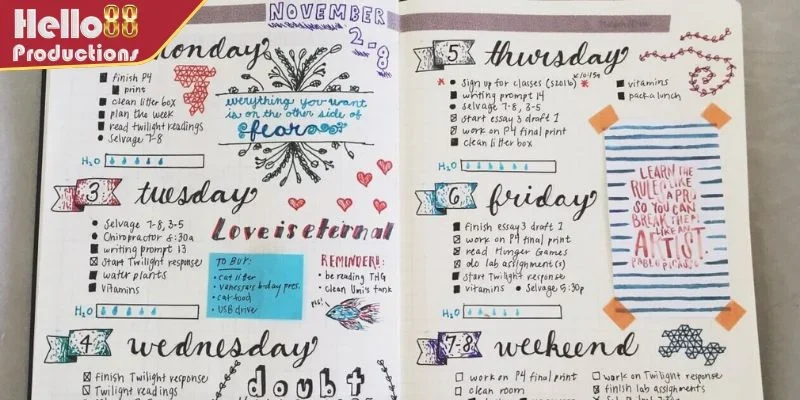 Hello88
Productions
NOVEMBER
2-8
monday
finish P4
print
clean litter box
plan the week
read Twilight readings
selvage 7-8
everything you want
is on the other side of
fear
H2O
3 tuesday
Selvage 7-8, 3-5
Chiropractor 8:30a
writing prompt 13
Start Twilight response
water plants
vitamins
H2O
Love is eternal
TO BUY:
cat litter
vanessa's b-day pres.
cat food
USB drive
REMINDER!:
be reading THG
clean Uni's tank
pls!
4 wednesday
finish Twilight response
Twilight readings
doubt
5 thursday
sign up for classes (S2016)
writing prompt 14
selvage 7-8, 3-5
start essay 3 draft 1
work on P4 final print
clean litter box
vitamins
pack a lunch
H2O
LEARN THE
RULES LIKE
A PRO
SO YOU CAN
BREAK THEM
LIKE AN
ARTIST.
PABLO PICASSO
6 friday
finish essay 3 draft 1
work on P4 final print
read Hunger Games
do lab assignment(s)
start Twilight response
vitamins
Selvage 5:30p
H2O
7-8 weekend
work on P4 final print
clean room
work on Twilight response
finish lab assignments